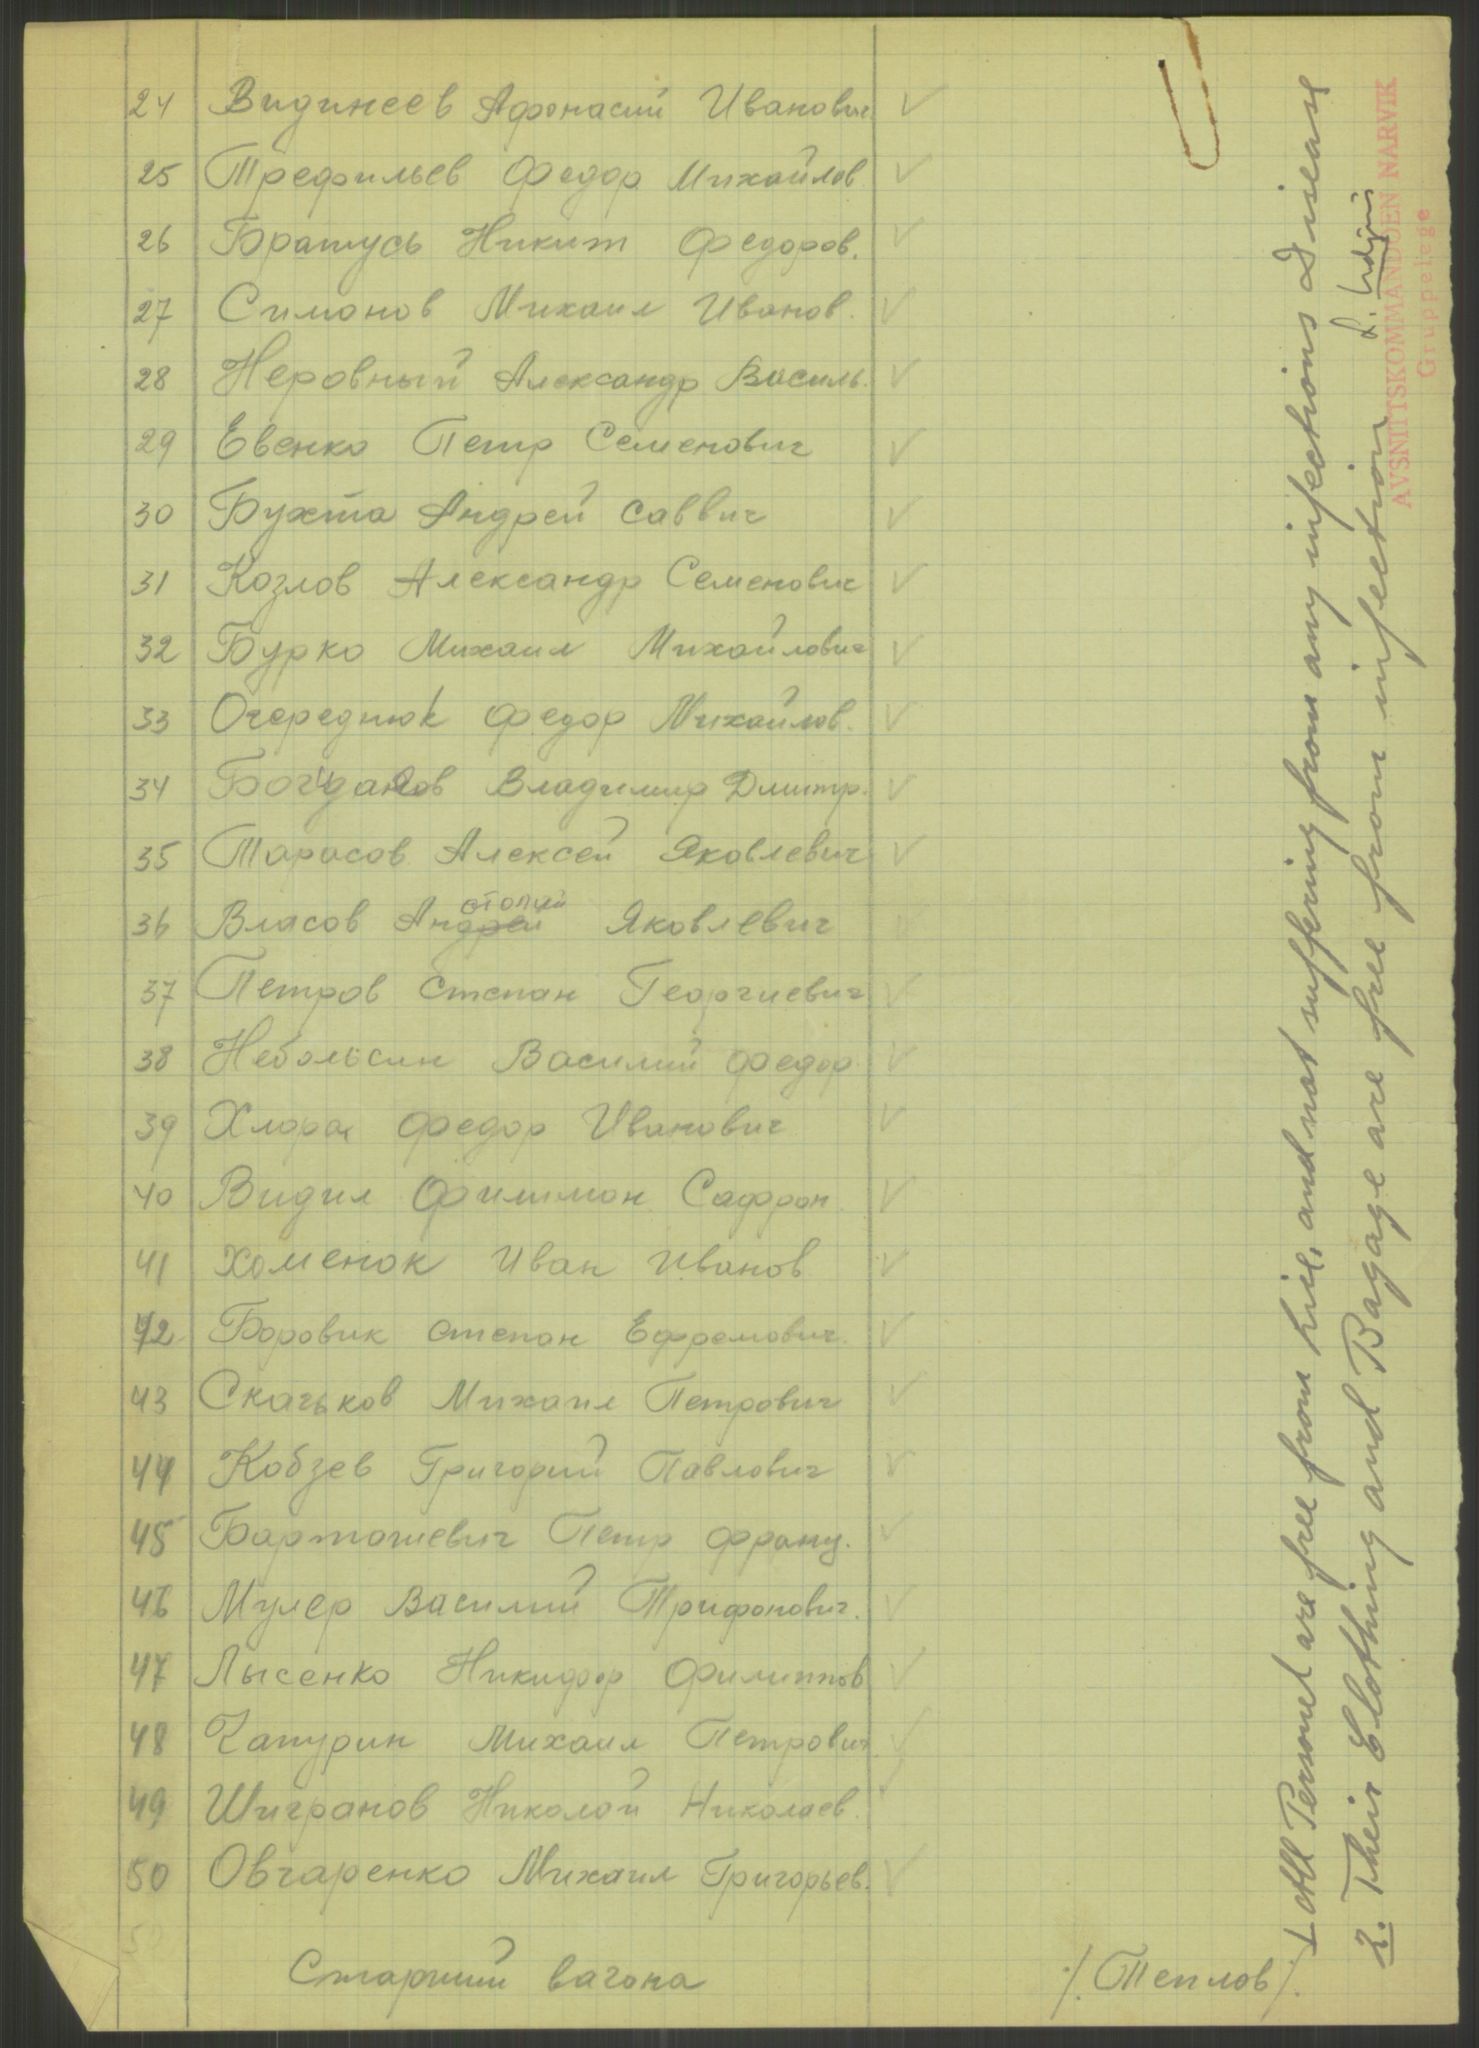 24 Видинеев Афонасий Иванович ✓
25 Трефильев Федор Михайлов ✓
26 Братусь Никит Федоров. ✓
27 Симонов Михаил Иванов. ✓
28 Неровный Александр Василь. ✓
29 Евенко Петр Семенович ✓
30 Бухта Андрей Саввич ✓
31 Козлов Александр Семенович ✓
32 Бурко Михаил Михайлович ✓
33 Очереднюк Федор Михайлов. ✓
34 Богданов Владимир Дмитр. ✓
35 Тарасов Алексей Яковлевич ✓
36 Власов Анатолий Яковлевич
37 Петров Степан Георгиевич ✓
38 Небольсин Василий Федор. ✓
39 Федор Иванович ✓
40 Видил Филимон Сафрон ✓
41 Хоменок Иван Иванов ✓
42 Боровик Степан Ефремович. ✓
43 Скачьков Михаил Петрович ✓
44 Кобзев Григорий Павлович ✓
45 Бартошевич Петр Франц. ✓
46 Мулер Василий Трифонович. ✓
47 Лысенко Никифор Филиппов ✓
48 Чапурин Михаил Петрович ✓
49 Шигранов Николай Николаев. ✓
50 Овчаренко Михаил Григорьев. ✓
Старший вагона /.Теплов/.
1 All Personel are free from lice, and not suffering from any infections Disease
2. Their Clothing and Bagage are free from infection
AVSNITTSKOMMANDOEN NARVIK
Gruppelege